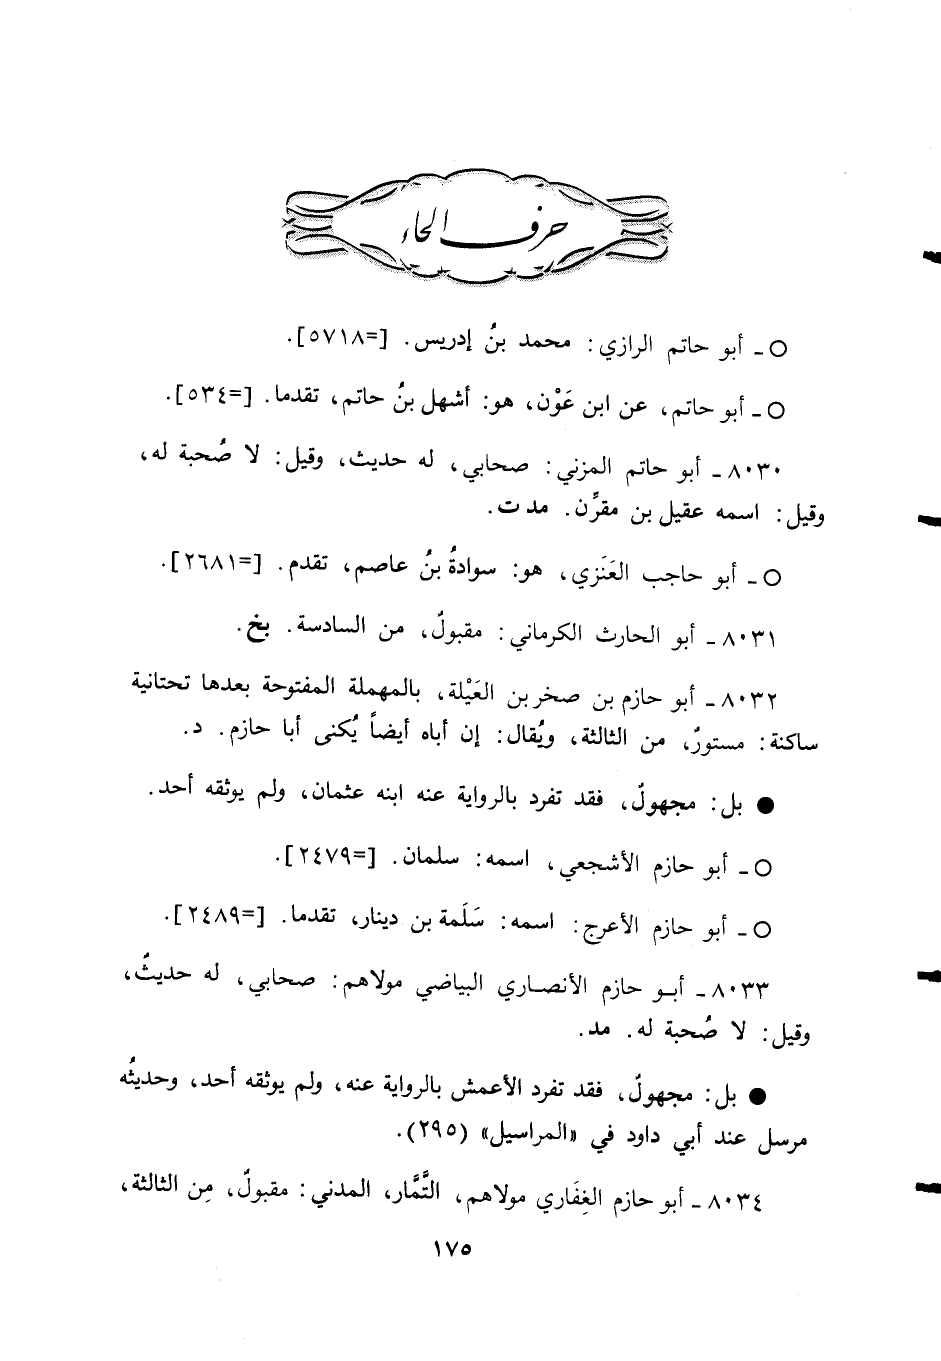 حرف الحاء
○ ـ أبو حاتم الرازي: محمد بنُ إدريس. [=٥٧١٨].
○ ـ أبو حاتم، عن ابن عَوْن، هو: أشهل بنُ حاتم، تقدما. [=٥٣٤].
٨٠٣٠ ـ أبو حاتم المزني: صحابي، له حديث، وقيل: لا صُحبة له،
وقيل: اسمه عقيل بن مقرِّن. مد ت.
○ ـ أبو حاجب العَنَزي، هو: سوادةُ بنُ عاصم، تقدم. [=٢٦٨١].
٨٠٣١ ـ أبو الحارث الكرماني: مقبولٌ، من السادسة. بخ.
٨٠٣٢ ـ أبو حازم بن صخر بن العَيْلة، بالمهملة المفتوحة بعدها تحتانية
ساكنة: مستورٌ، من الثالثة، ويُقال: إن أباه أيضاً يُكنى أبا حازم. د.
● بل: مجهولٌ، فقد تفرد بالرواية عنه ابنه عثمان، ولم يوثقه أحد.
○ ـ أبو حازم الأشجعي، اسمه: سلمان. [=٢٤٧٩].
○ ـ أبو حازم الأعرج: اسمه: سَلَمة بن دينار، تقدما. [=٢٤٨٩].
٨٠٣٣ ـ أبـو حازم الأنصـاري البياضي مولاهم: صحابي، له حديثٌ،
وقيل: لا صُحبة له. مد.
● بل: مجهولٌ، فقد تفرد الأعمش بالرواية عنه، ولم يوثقه أحد، وحديثُه
مرسل عند أبي داود في «المراسيل» (٢٩٥).
٨٠٣٤ ـ أبو حازم الغِفَاري مولاهم، التَّمَّار، المدني: مقبولٌ، مِن الثالثة،
١٧٥